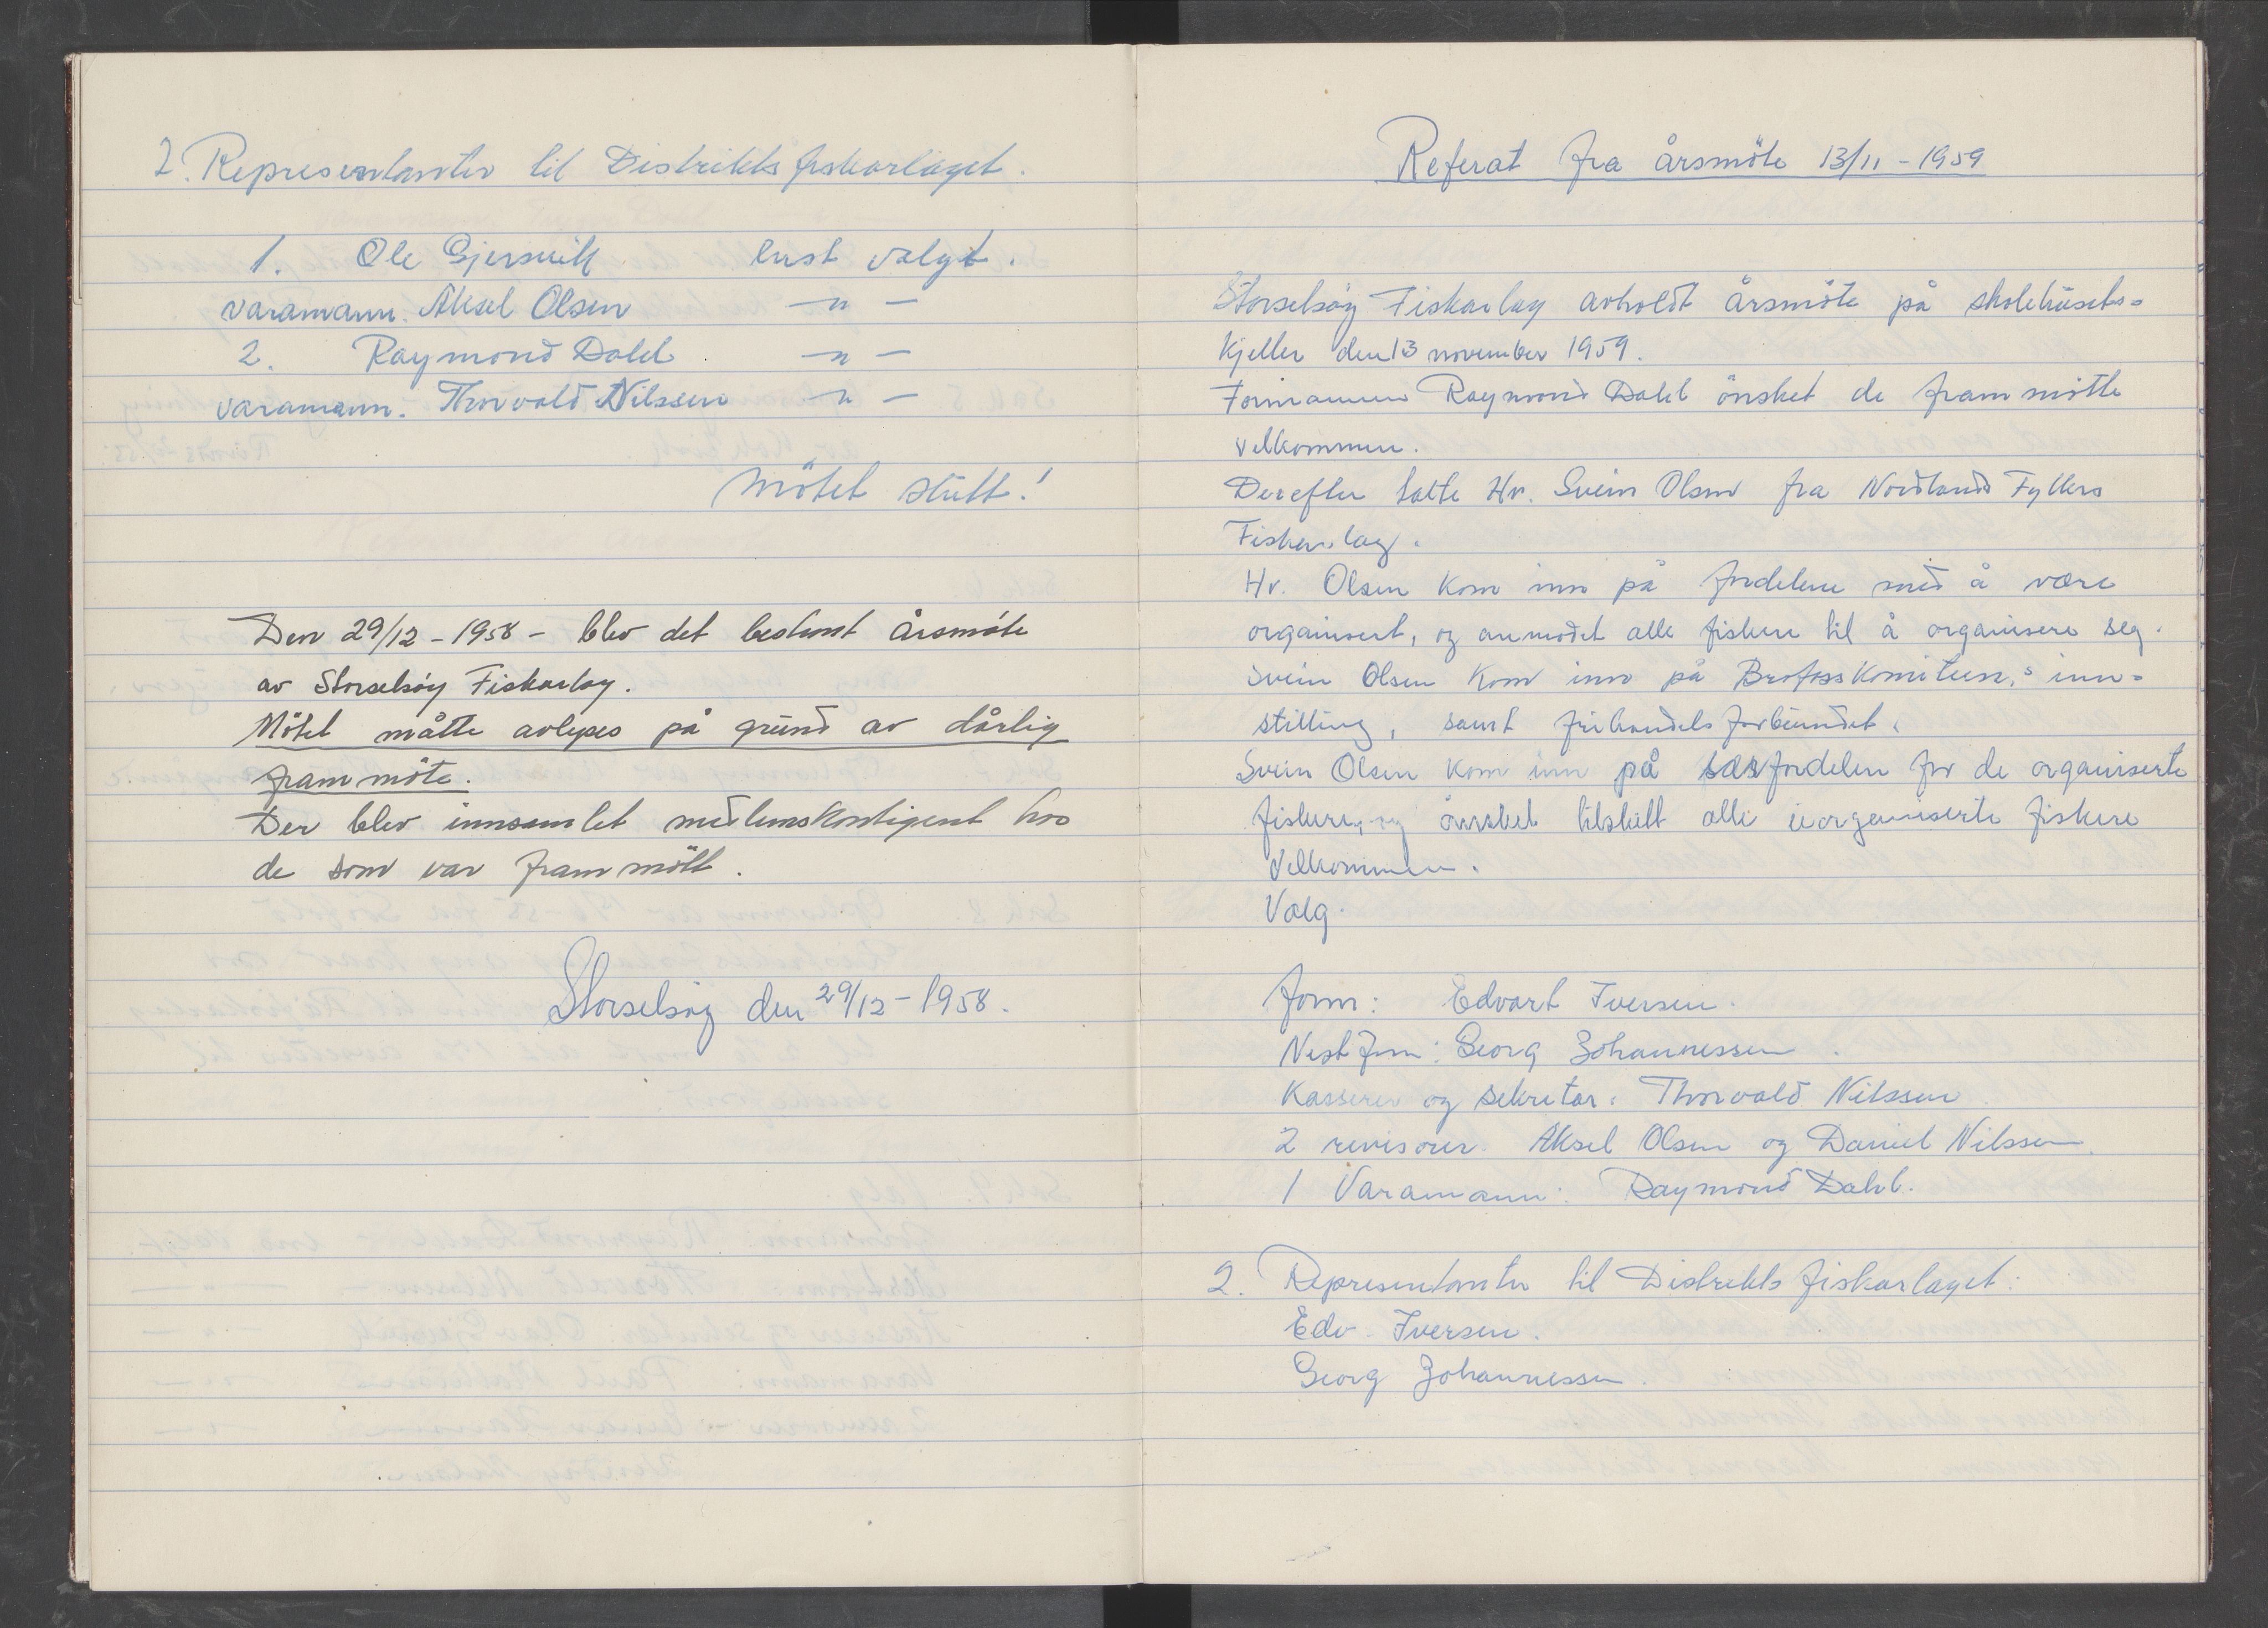 2. Representanter til Distriktsfiskarlaget.
1. Ole Gjersvik enst valgt.
varamann. Aksel Olsen —"—
2. Raymond Dahl. —"—
varamann. Thorvald Nilssen —"—
Mötet slutt!
Den 29/12-1958 - blev det bestemt årsmöte
av Storselsöy Fiskarlag.
Mötet måtte avlyses på grund av dårlig
frammöte.
Der blev innsamlet medlemskontigent hos
de som var frammött.
Storselsöy den 29/12-1958.
Referat fra årsmöte 13/11-1959
Storselsöy Fiskarlag avholdt årsmöte på skolehusets=
kjeller den 13 november 1959.
Formannen Raymond Dahl önsket de frammötte
velkommen.
Derefter talte Hr. Svein Olsen fra Nordland Fylkes
Fiskarlag.
Hr. Olsen kom inn på fordelene med å være
organisert, og anmodet alle fiskere til å organisere seg.
Svein Olsen kom inn på Brofosskomiteen,s inn=
stilling, samt frihandelsforbundet.
Svein Olsen kom inn på særfordelen for de organiserte
fiskere, og önsket tilslutt alle uorganiserte fiskere
Velkommen.
Valg.
form: Edvart Iversen.
Nestform: Georg Johannessen.
Kasserer og sekretær: Thorvald Nilssen
2 revisorer. Aksel Olsen og Daniel Nilssen.
1 Varamann: Raymond Dahl.
2. Representanter til Distriktsfiskarlaget:
Edv. Iversen.
Georg Johannessen.